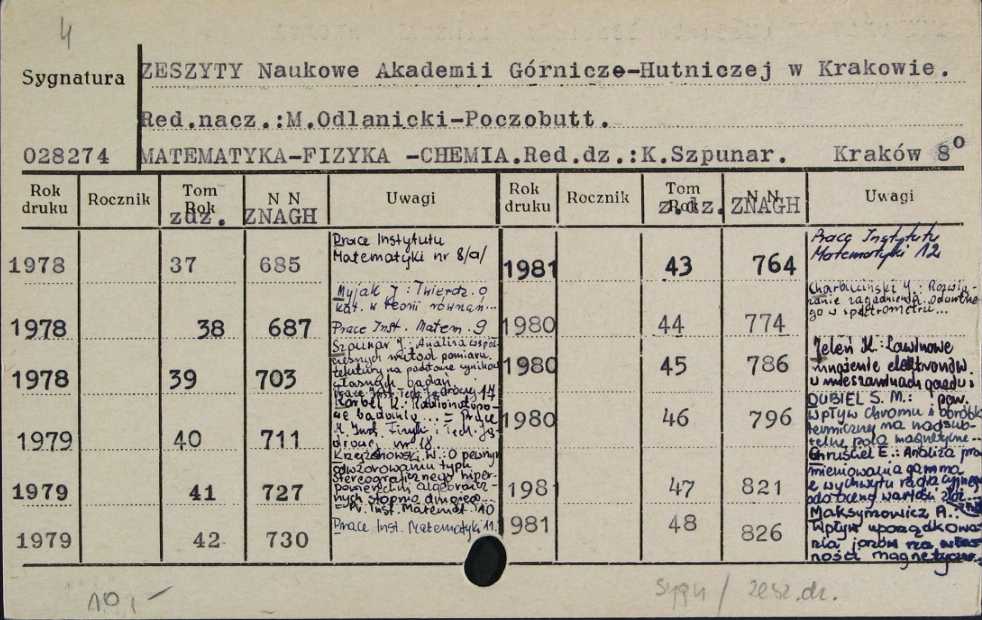 4
Sygnatura
ZESZYTY Naukowe Akademii Górniczo-Hutniczej w Krakowie.
Red.nacz.:M.Odlanicki-Poczobutt.
028274 MATEMATYKA-FIZYKA -CHEMIA.Red.dz.:K.Szpunar. Kraków 8°
Rok druku Rocznik Tom Rok N N Uwagi Rok druku Rocznik Tom Rok N N Uwagi
zdz. ZNAGH z.dz. ZNAGH
1978 37 685 Prace Instytutu
Matematyki nr 8/a/
1978 38 687 Myjak J: Twierdz. o
kat. w teorii równań...
Prace Inst. Matem. 9
1978 39 703 Szpunar J.: Analiza współ-
czesnych metod pomiaru
tekstury na podstawie wyników
własnych badań
Prace Inst. Tech. Jądrowej 17
1979 40 711 Korbel K.: Radioizotopo-
we badania... = Prace
Inst. Fizyki i Tech. Ją-
drowej nr 18
1979 41 727 Krzyżanowski W.: O pewnym
odwzorowaniu typu
stereograficznego hiper-
powierzchni algebraicz-
nych stopnia drugiego...
= Pr. Inst. Matemat. 10
1979 42 730 Prace Inst. Matematyki 11.
1981 43 764 Prace Instytutu
Matematyki 12
1980 44 774 Charbiciński J.: Rozwią-
zanie zagadnienia odwrotne-
go w spektrometrii...
1980 45 786 Jeleń K.: Lawinowe
mnożenie elektronów
w mieszaninach gazów:
1980 46 796 DUBIEL S. M.: pow.
wpływ chromu i obróbki
termicznej na nadsub-
telne pola magnetyczne...
1981 47 821 Chruściel E.: Analiza pro-
mieniowania gamma
z wychwytu radiacyjnego
do oceny wartości złóż...
1981 48 826 Maksymowicz A.:
Wpływ uporządkowa-
nia jonów na włas-
ności magnetyczn...
10,-
sygn / zesz.dz.